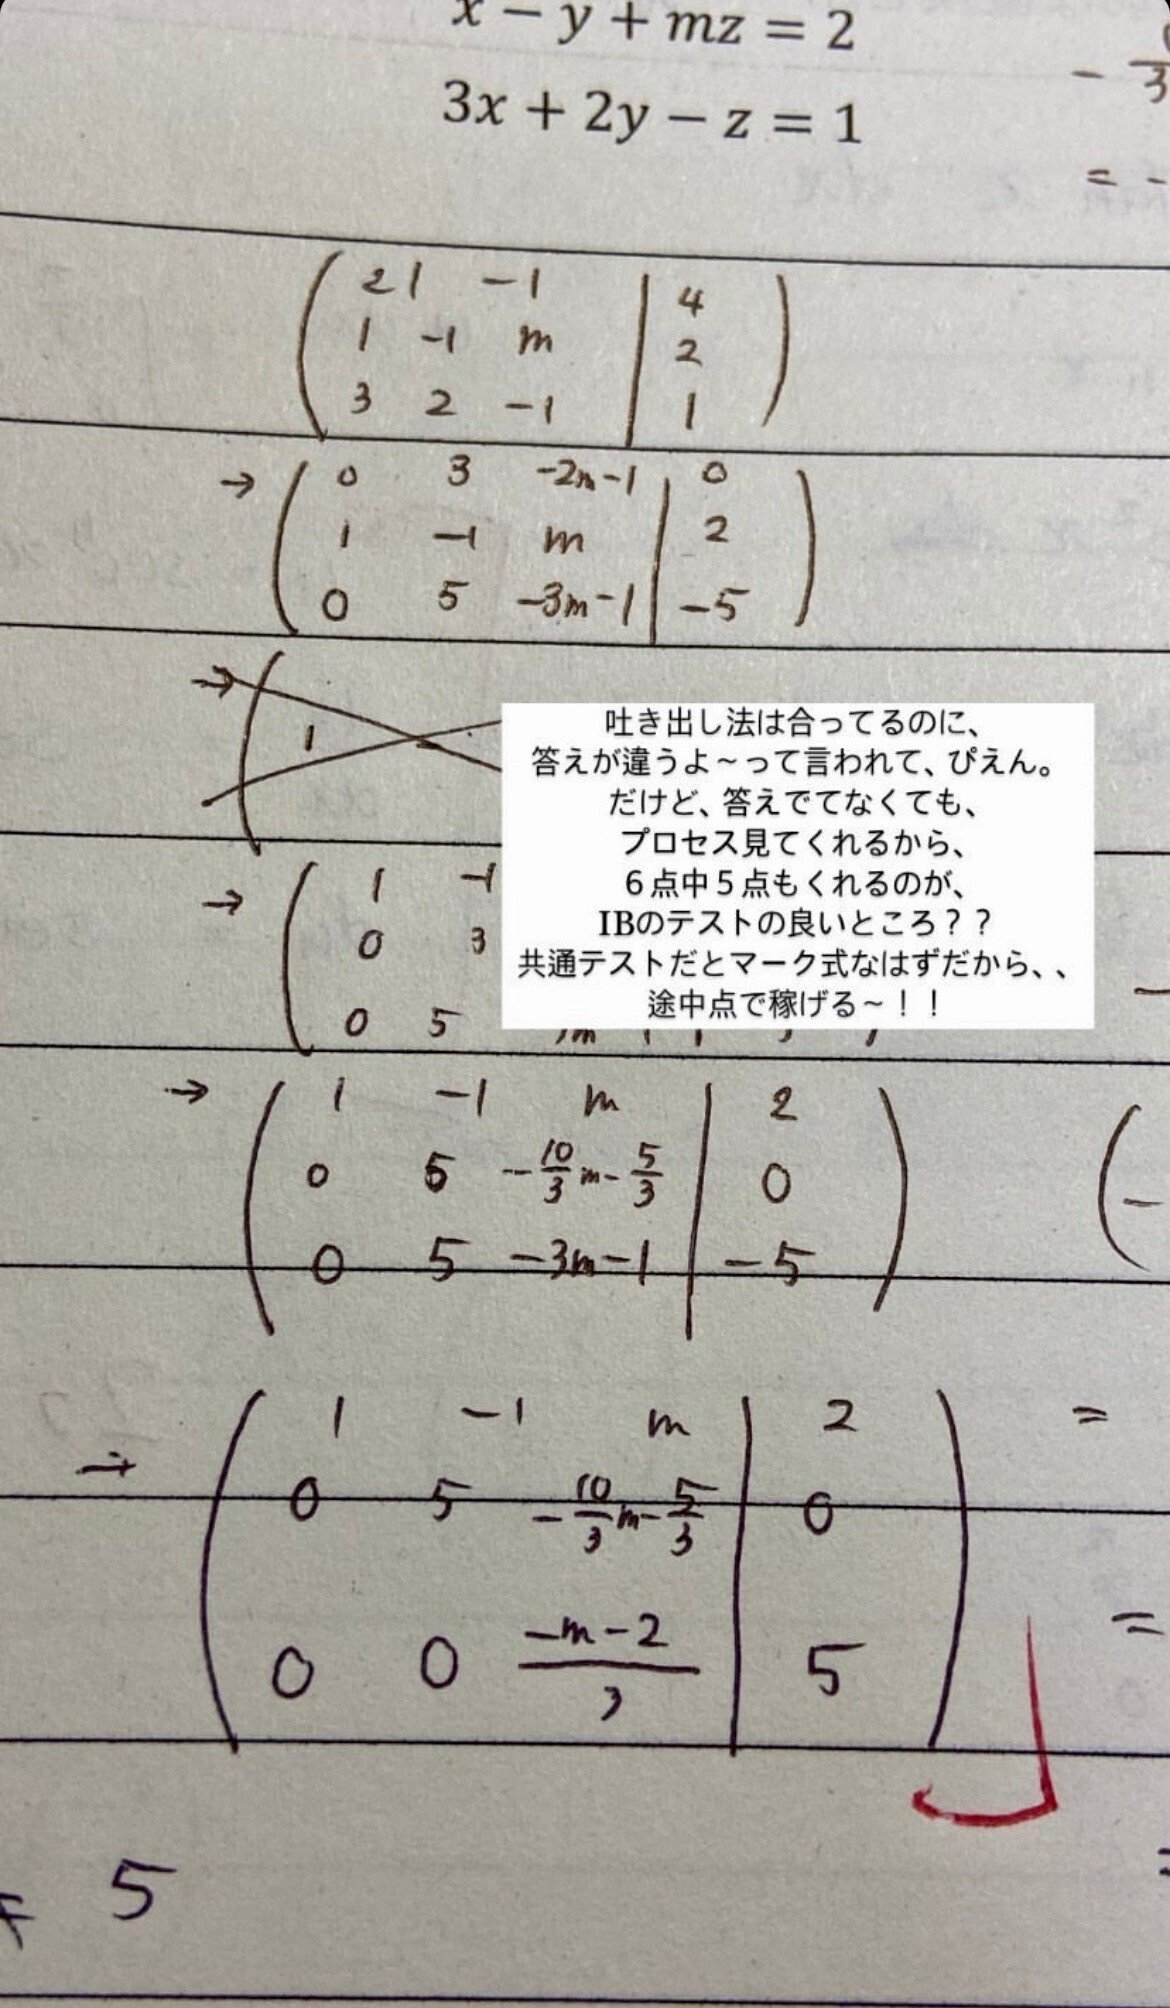 x − y + mz = 2
3x + 2y − z = 1
2 1 -1 | 4
1 -1 m | 2
3 2 -1 | 1
→ 0 3 -2m-1 | 0
1 -1 m | 2
0 5 -3m-1 | -5
→ 1
吐き出し法は合ってるのに、
答えが違うよ~って言われて、ぴえん。
だけど、答えでてなくても、
プロセス見てくれるから、
6点中5点もくれるのが、
IBのテストの良いところ??
共通テストだとマーク式なはずだから、、
途中点で稼げる~!!
→ 1 -1
0 3
0 5
→ 1 -1 m | 2
0 5 -10/3 m - 5/3 | 0
0 5 -3m-1 | -5
→ 1 -1 m | 2
0 5 -10/3 m - 5/3 | 0
0 0 (-m-2)/3 | 5
5